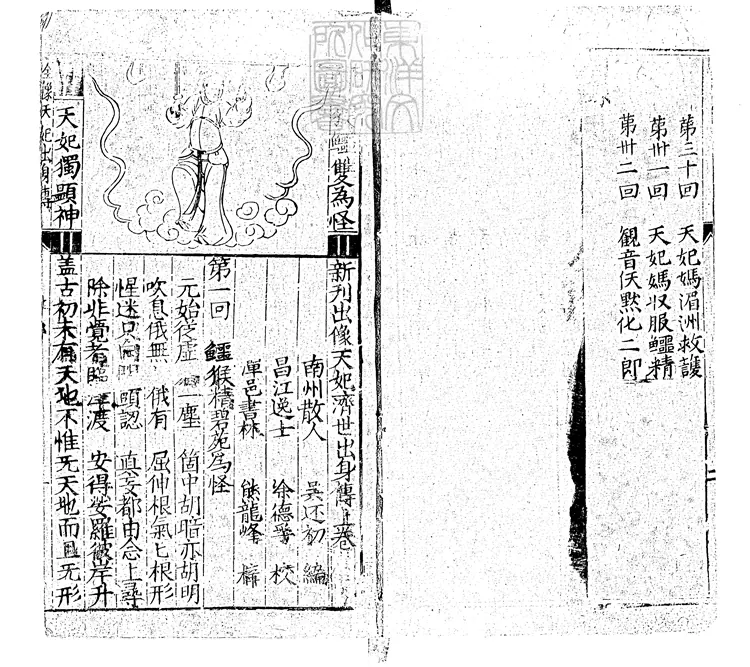 第三十回 天妃媽湄洲救護
第卅一回 天妃媽収服鱷精
第卅二回 観音佛點化二郎
鱷雙為怪
新刊出像天妃濟世出身傳上卷
南州散人 吳还初 編
昌江逸士 徐德孚 校
潭邑書林 熊龍峰 梓
第一回 鱷猴精碧苑為怪
元始從虛 一塵 箇中胡暗亦胡明
吹息俄無 俄有 屈伸根氣匕根形
惺迷只 頭認 真妄都由念上尋
除非覺者臨 渡 安得娑羅彼岸升
盖古初未有天地不惟无天地而且无形
天妃獨顯神
全像天妃出身傳
東洋文化研究所圖書